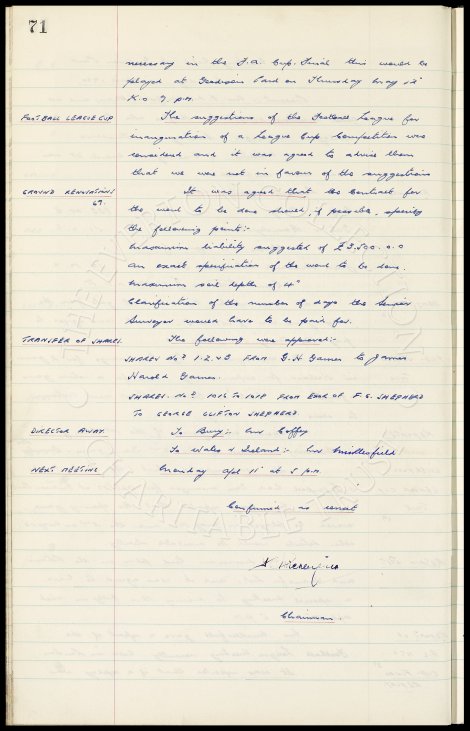 71
necessary in the F.A. Cup. Final this would be
played at Goodison Park on Thursday May 12th
K.O. 7 p.m.
FOOTBALL LEAGUE CUP The suggestions of the Football League for
inauguration of a League Cup Competition was
considered and it was agreed to advise them
that we were not in favour of the suggestions
GROUND RENOVATIONS It was agreed that the Contract for
the work to be done should, if possible, specify
the following points:-
Maximum liability suggested of £3,500.0.0
An exact specification of the work to be done.
Maximum soil depths of 4"
Clarification of the number of days the
Surveyor would have to be paid for.
TRANSFER OF SHARES. The following were approved:-
SHARES Nos 1.2. & 3 FROM G.H. James to James
Harold James.
SHARES. Nos 1016 TO 1018 FROM EXOR OF F.G. SHEPHERD
TO GEORGE CLIFTON SHEPHERD.
DIRECTOR AWAY. To Bury:- Mr Coffey
To Wales v Ireland:- Mr Micklesfield
NEXT MEETING Monday Apl 11th at 5 p.m.
Confirmed as correct
Chairman.
THE EVERTON COLLECTION
CHARITABLE TRUST